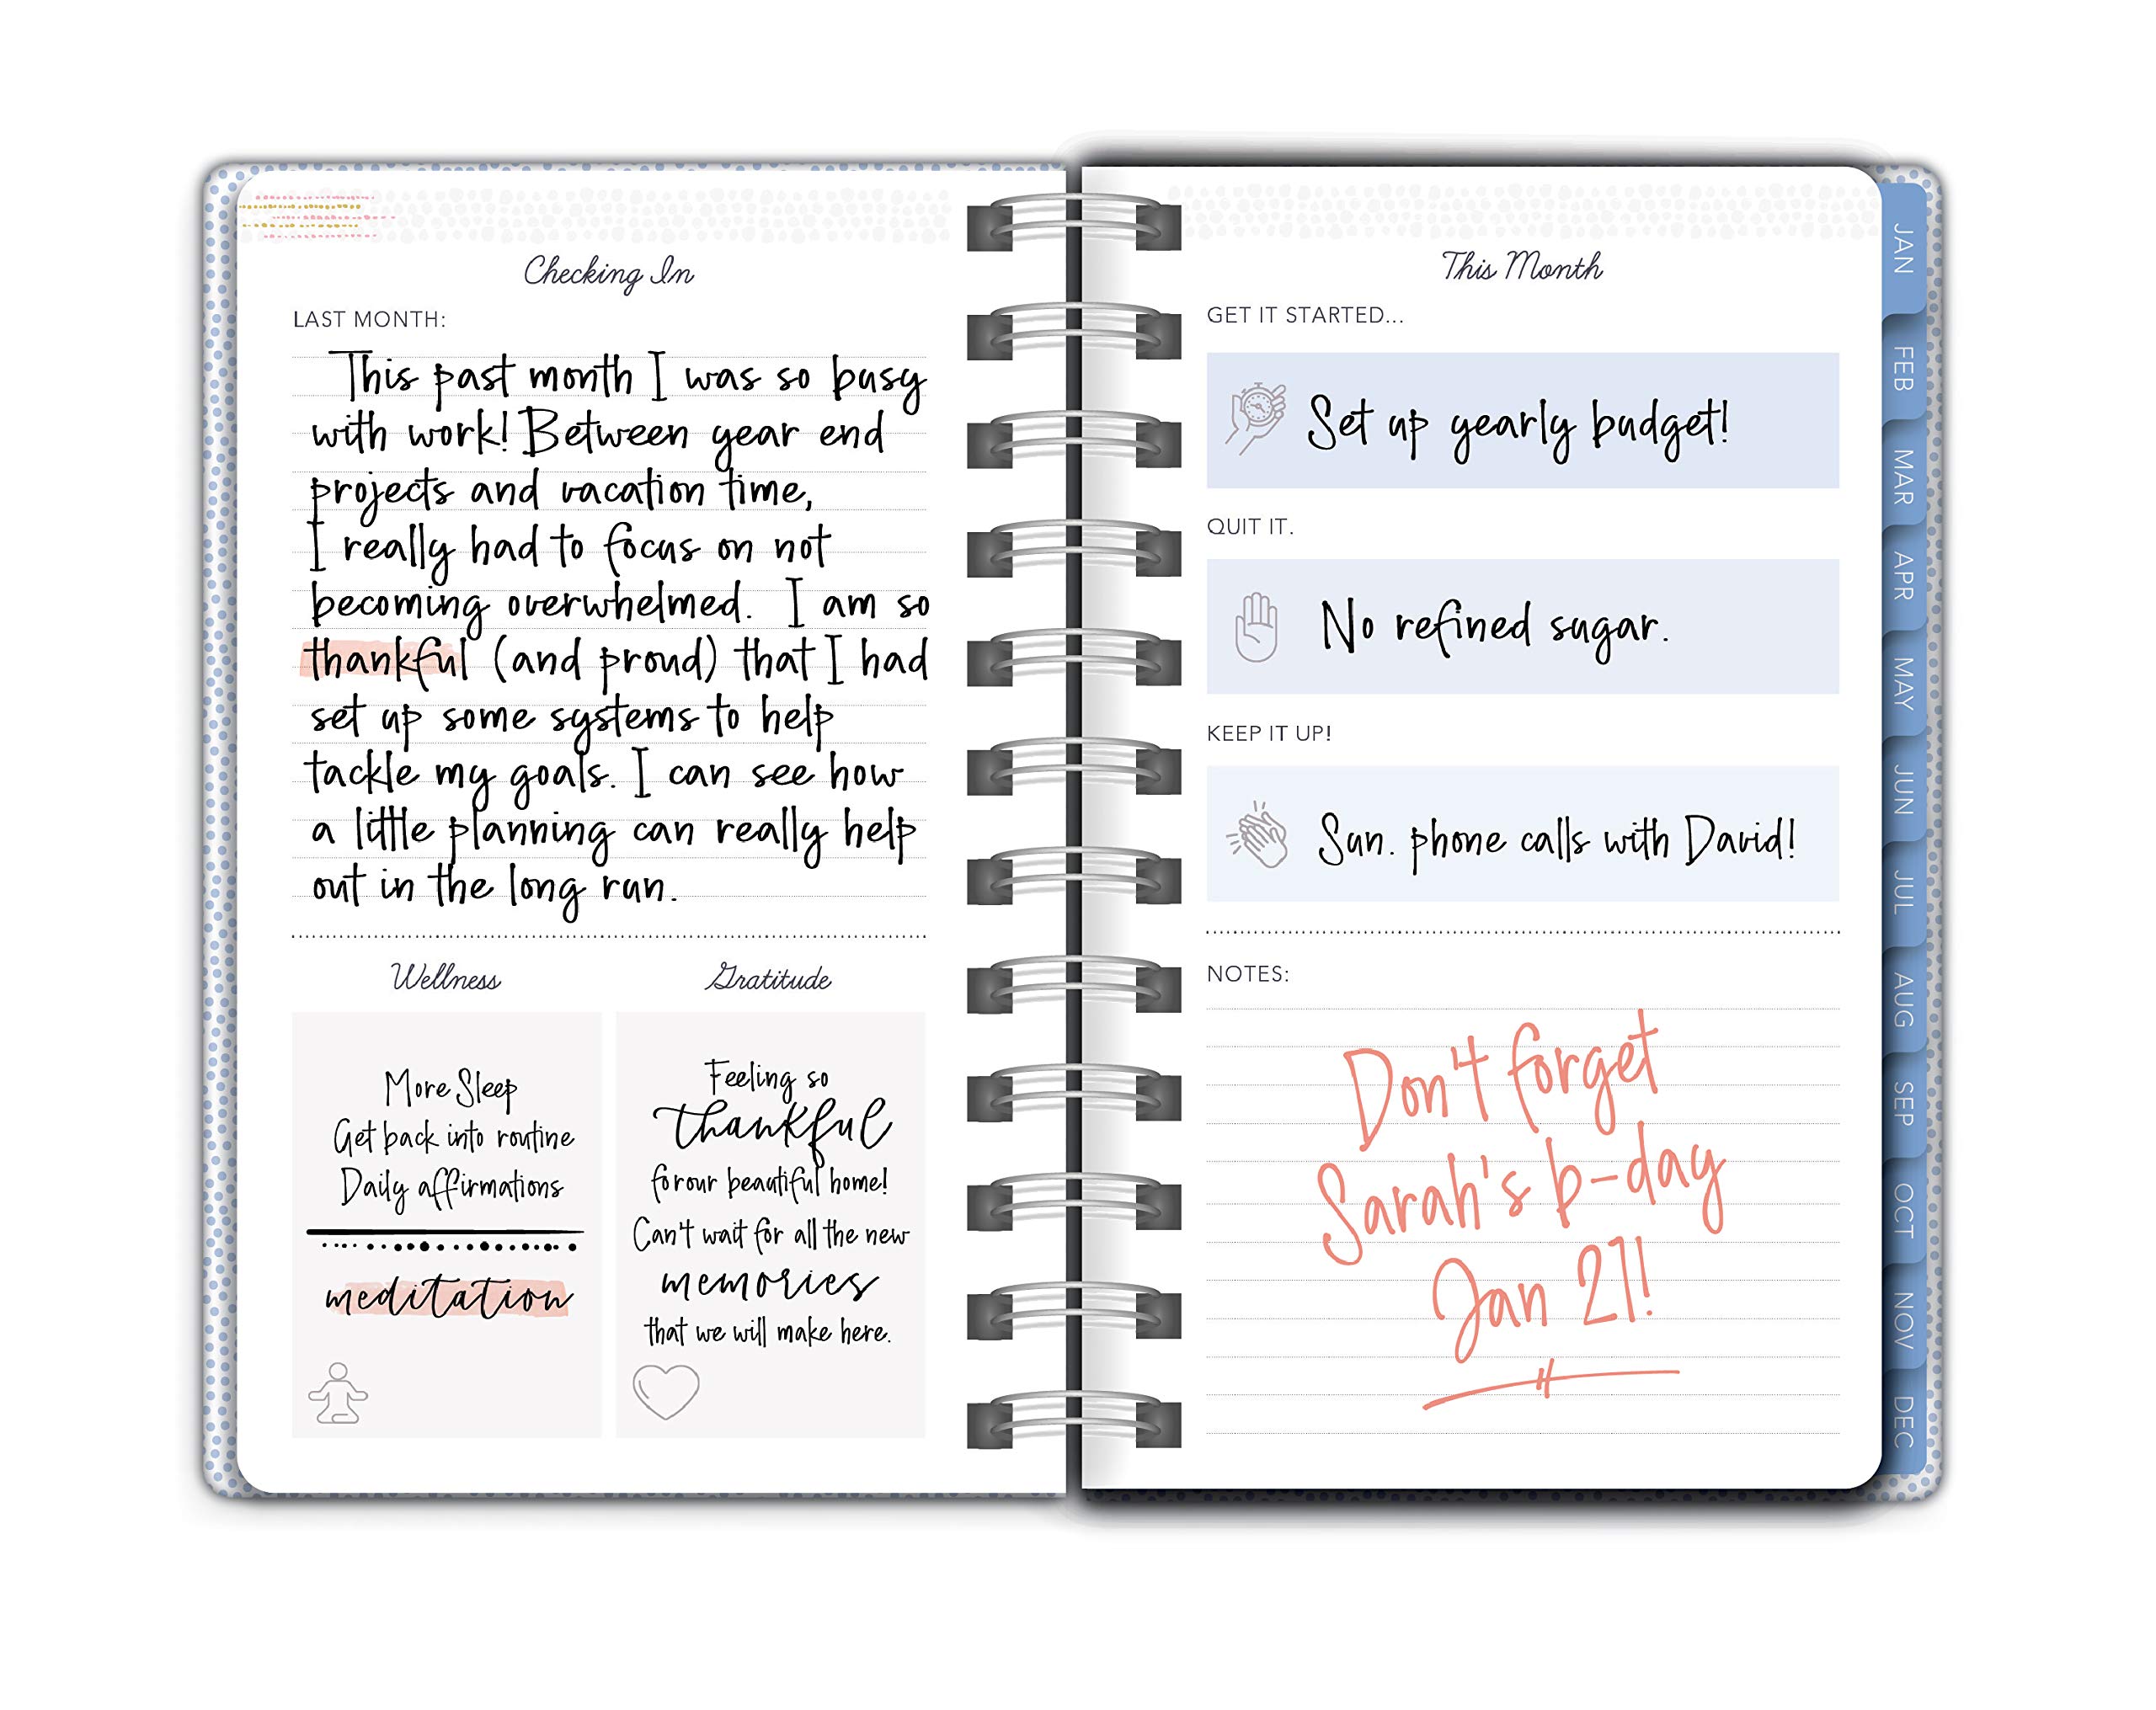 Checking In
LAST MONTH:
This past month I was so busy
with work! Between year end
projects and vacation time,
I really had to focus on not
becoming overwhelmed. I am so
thankful (and proud) that I had
set up some systems to help
tackle my goals. I can see how
a little planning can really help
out in the long run.
Wellness
More Sleep
Get back into routine
Daily affirmations
meditation
Gratitude
Feeling so
thankful
for our beautiful home!
Can't wait for all the new
memories
that we will make here.
This Month
GET IT STARTED...
Set up yearly budget!
QUIT IT.
No refined sugar.
KEEP IT UP!
Sun. phone calls with David!
NOTES:
Don't forget
Sarah's b-day
Jan 27!
JAN
FEB
MAR
APR
MAY
JUN
JUL
AUG
SEP
OCT
NOV
DEC